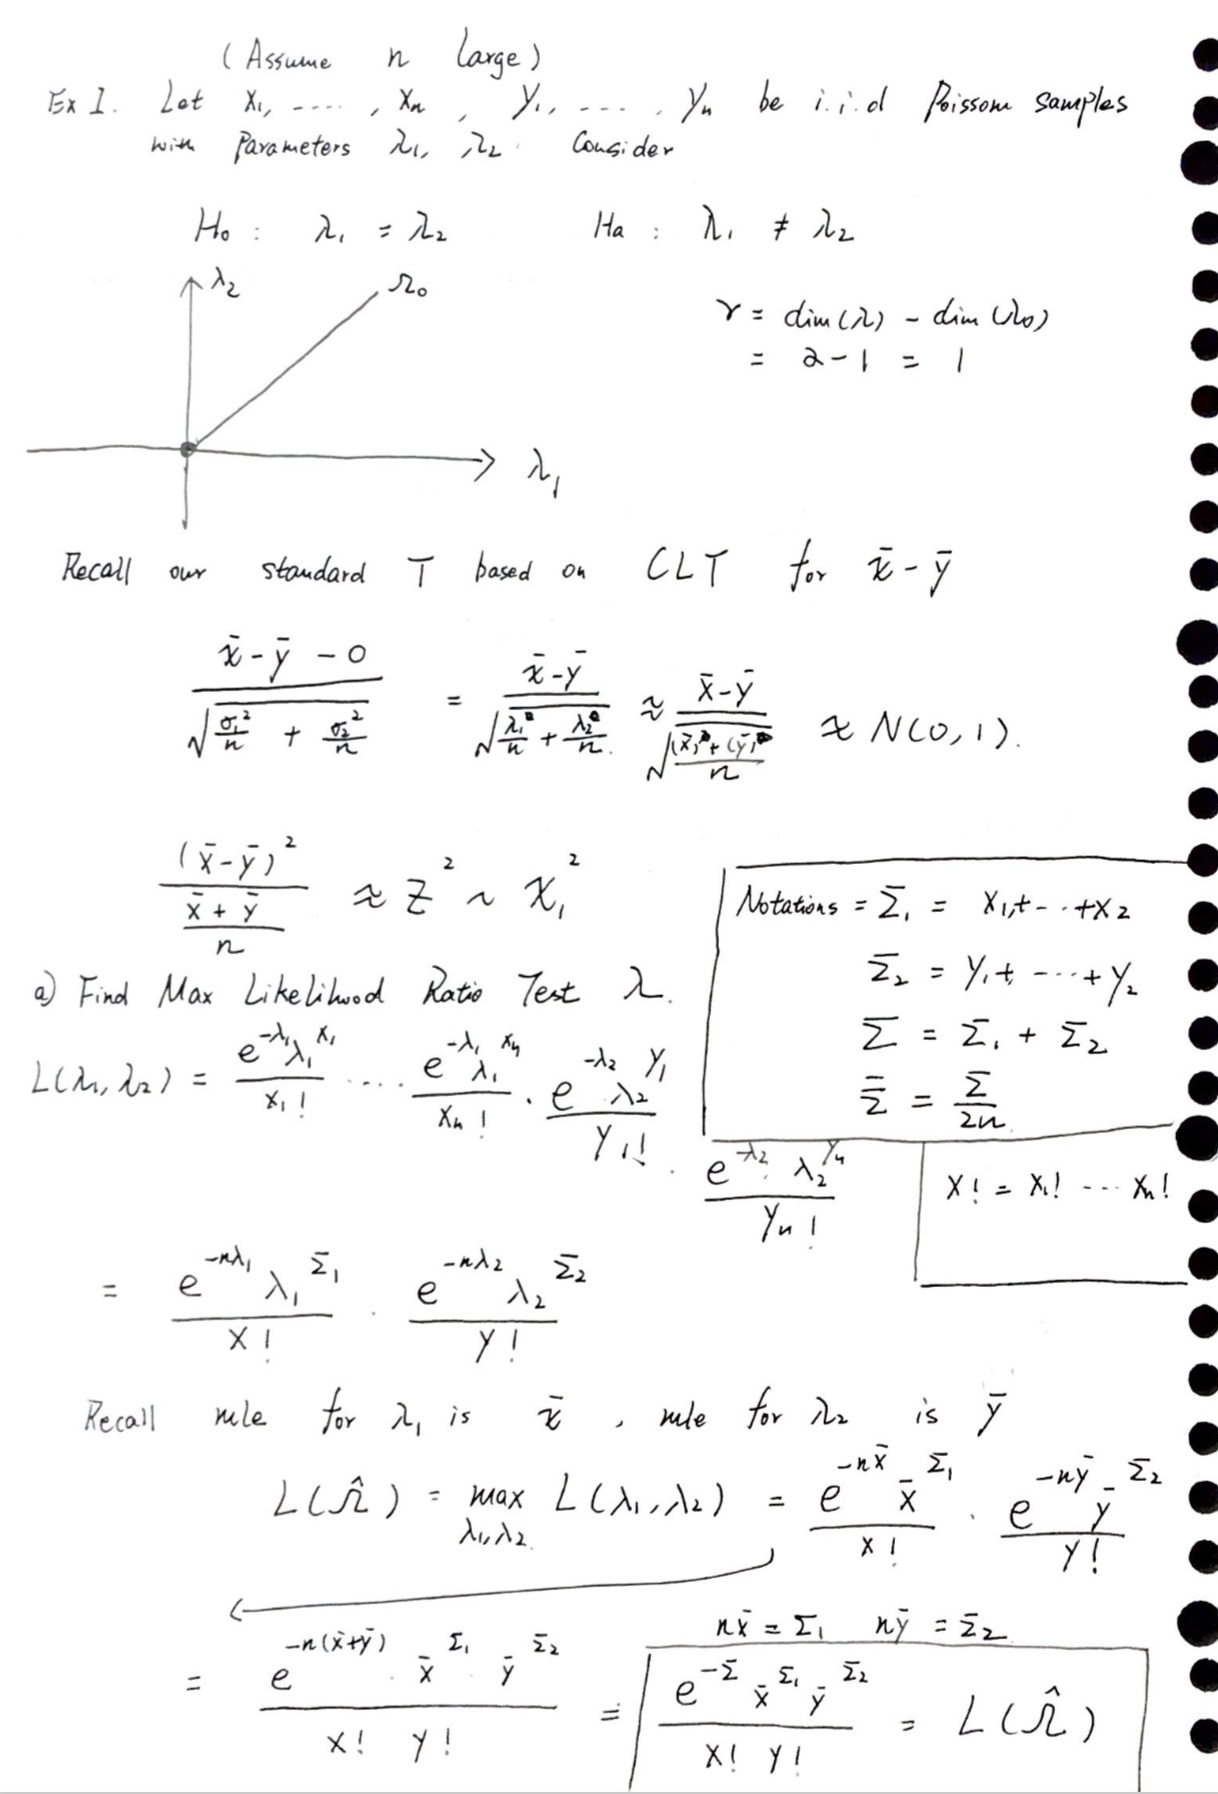 (Assume n large)
Ex 1. Let X₁, ...., Xn, Y₁, ...., Yn be i.i.d Poissom samples
with Parameters λ₁, λ₂. Consider
H₀ : λ₁ = λ₂ Ha : λ₁ ≠ λ₂
λ₂ Ω₀
r = dim(Ω) - dim(Ω₀)
= 2-1 = 1
λ₁
Recall our standard T based on CLT for x̄-ȳ
(x̄-ȳ-0)/√(σ₁²/n + σ₂²/n) = (x̄-ȳ)/√(λ₁/n + λ₂/n) ≈ (x̄-ȳ)/√(((x̄)+(ȳ))/n) ≈ N(0,1).
(x̄-ȳ)²/((x̄+ȳ)/n) ≈ Z² ~ χ₁²
Notations = Σ₁ = X₁+-··+X₂
Σ₂ = Y₁+ -···+Y₂
Σ = Σ₁ + Σ₂
Σ̄ = Σ/2n
X! = X₁! --- Xn!
a) Find Max Likelihood Ratio Test λ.
L(λ₁, λ₂) = (e^(-λ₁) λ₁^(X₁))/X₁! ···· (e^(-λ₁) λ₁^(Xn))/Xn! · (e^(-λ₂) λ₂^(Y₁))/Y₁! · (e^(-λ₂) λ₂^(Yn))/Yn!
= (e^(-nλ₁) λ₁^(Σ₁))/X! · (e^(-nλ₂) λ₂^(Σ₂))/Y!
Recall mle for λ₁ is x̄, mle for λ₂ is ȳ
L(Ω̂) = max L(λ₁,λ₂) = (e^(-nx̄) x̄^(Σ₁))/X! · (e^(-nȳ) ȳ^(Σ₂))/Y!
λ₁,λ₂
nx̄ = Σ₁ nȳ = Σ₂
= (e^(-n(x̄+ȳ)) · x̄^(Σ₁) · ȳ^(Σ₂))/(X! Y!) = (e^(-Σ) x̄^(Σ₁) ȳ^(Σ₂))/(X! Y!) = L(Ω̂)